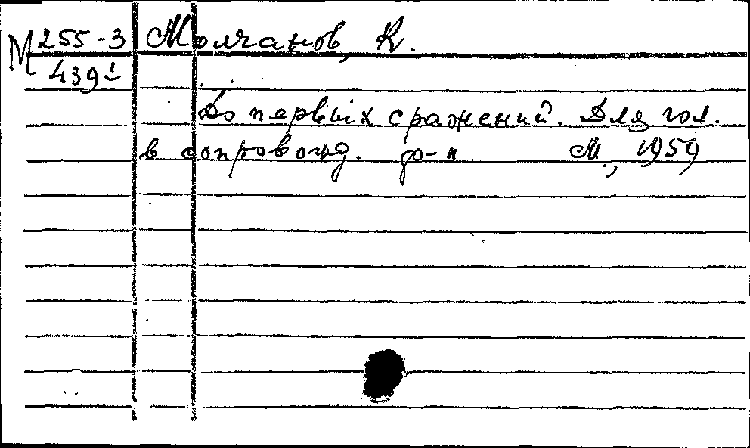 М 255-3 Молчанов, К.
439
До первых сражений. Для гол.
в сопровожд. ф-п М., 1959